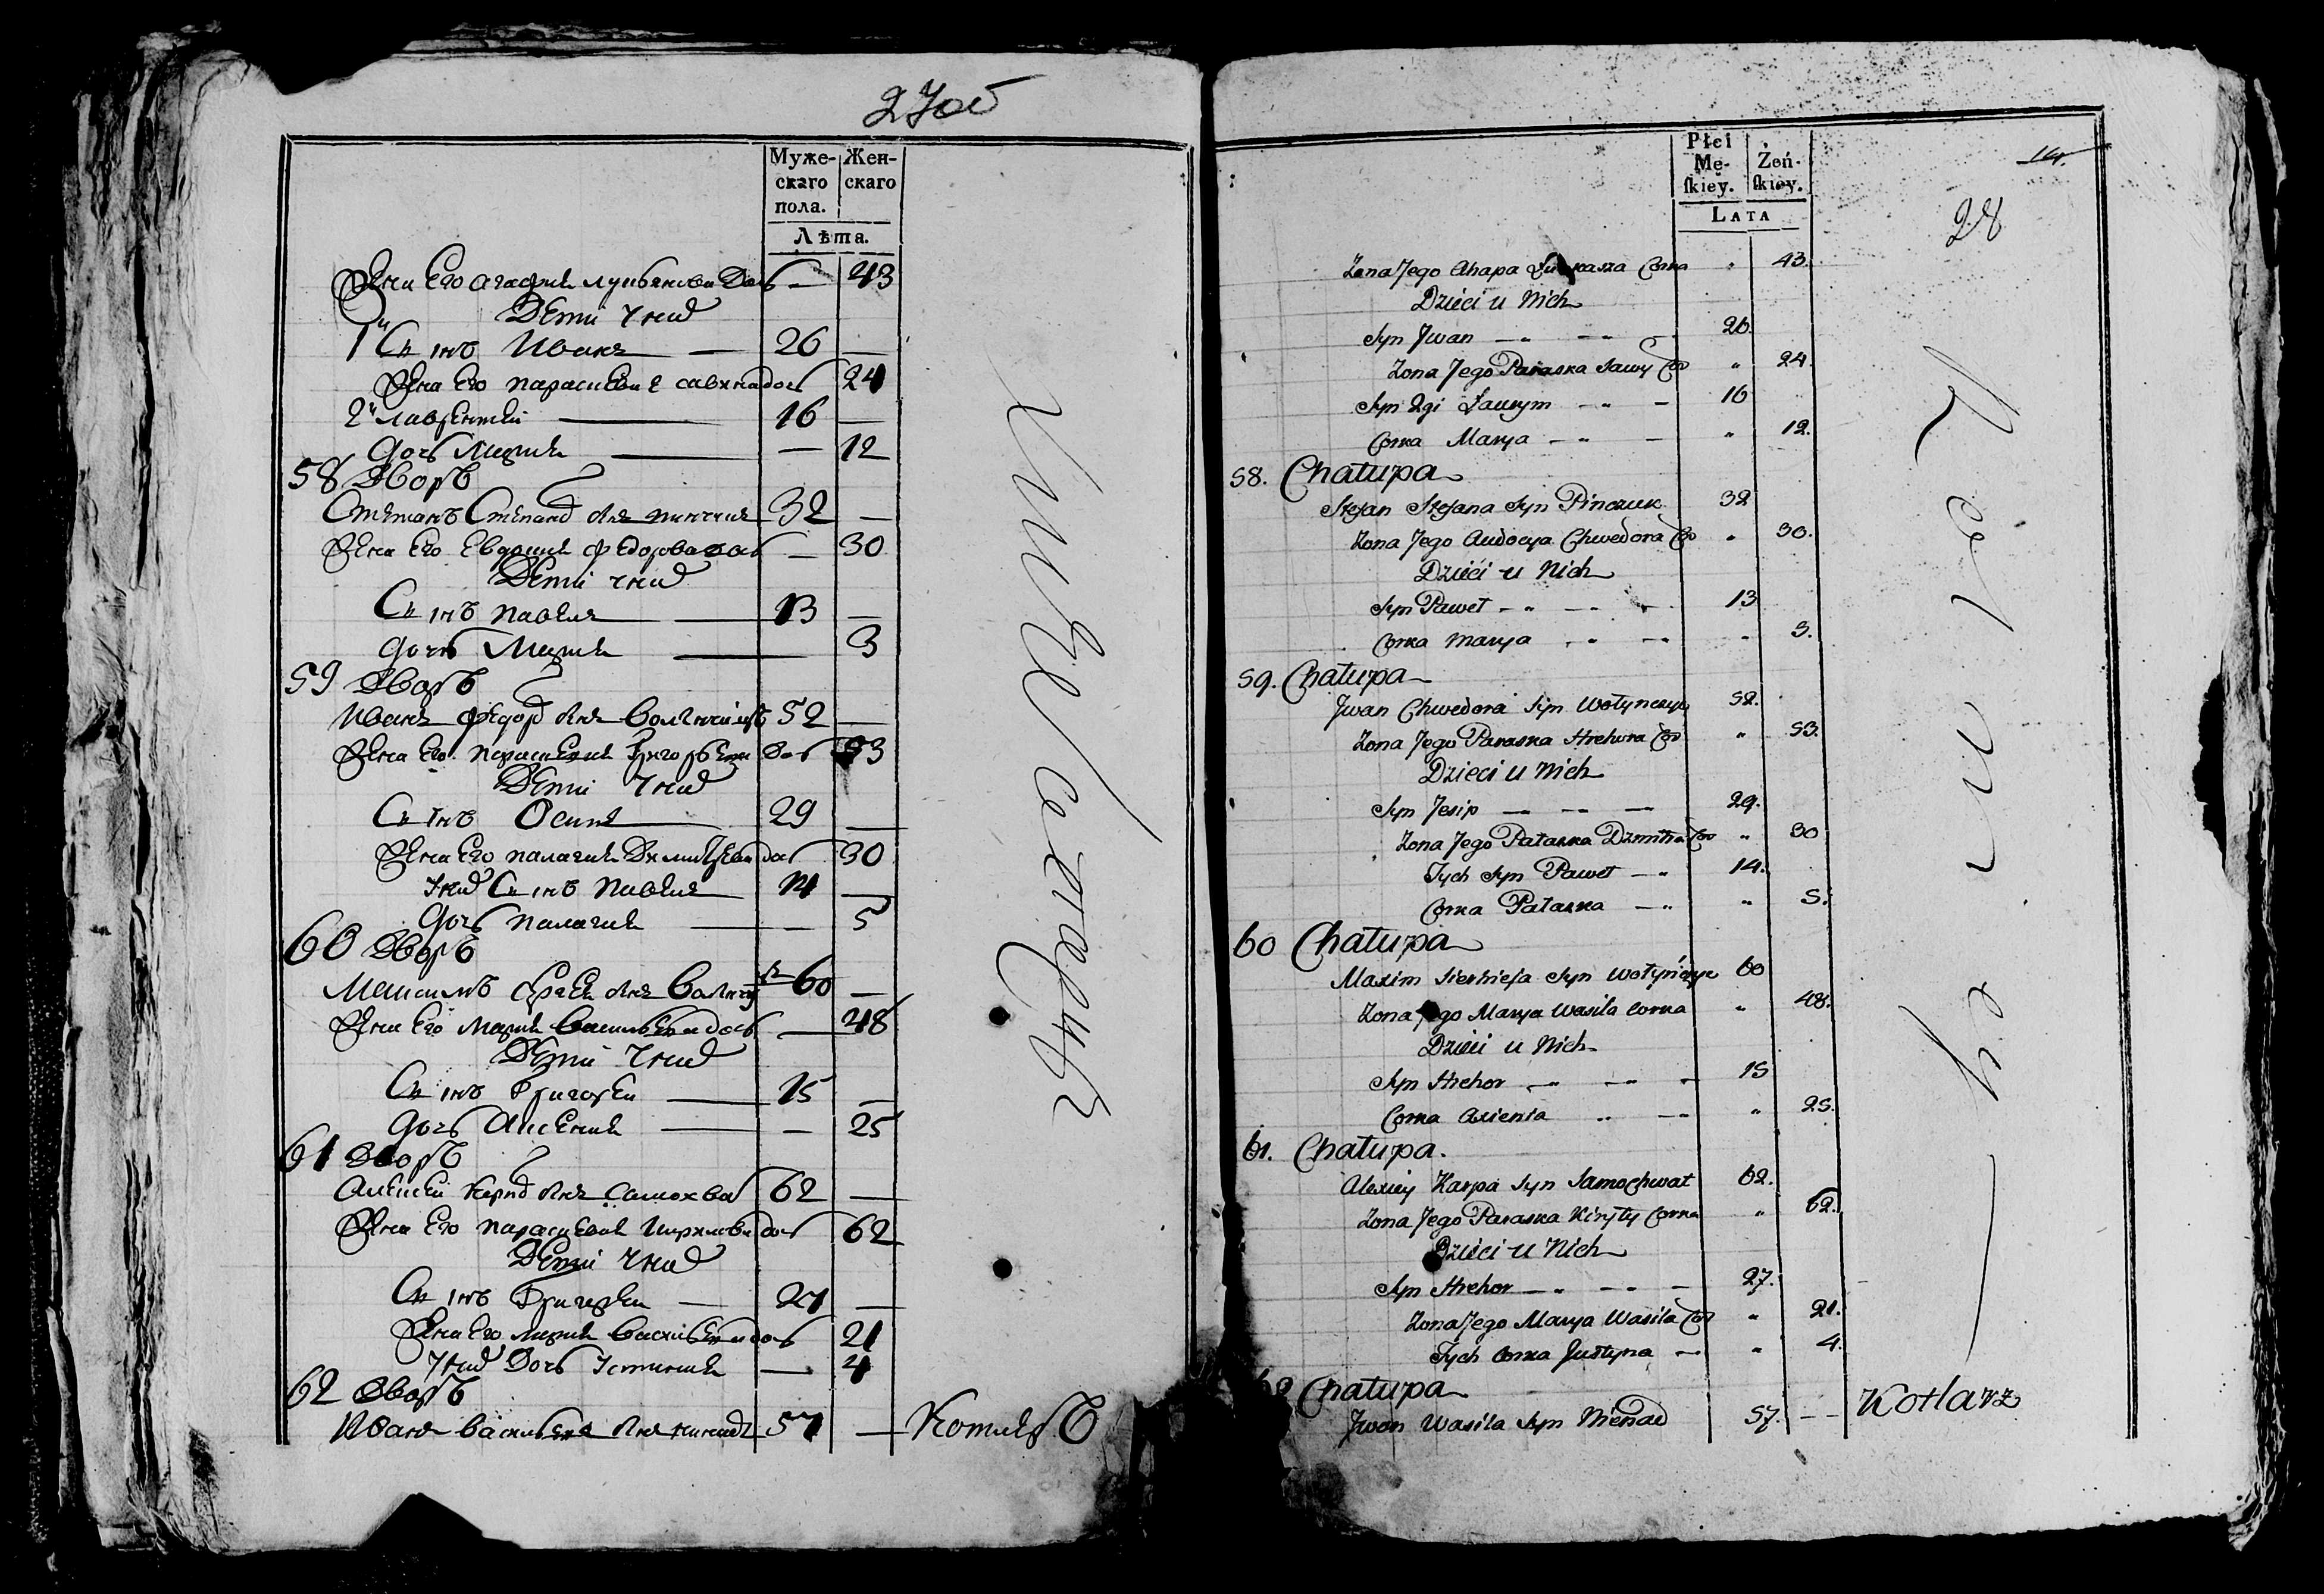 27об
Муже-
скаго
пола.
Жен-
скаго
Лѣта.
Жена Его Агафия лукьянова Дочь — 43
Дети у нид
1й Сынъ Иванъ — 26 —
Жена Его параскевия савина дочь 24
2й лаврентей — 16 —
дочь Мария — — 12
58 Дворъ
Степанъ Степанд Пинчукъ 32 —
Жена Его Евдокия федорова дочь — 30
Дети у нид
Сынъ павелъ — 13 —
дочь Мария — 3
59 Дворъ
Иванъ федорд Волинчицъ 52 —
Жена Его параскевия Григорьева Дочь 53
Дети у нид
Сынъ Осипъ 29 —
Жена Его палагия Дмитрева дочь 30
у нид Сынъ павелъ 14 —
дочь палагия — — 5
60 Дворъ
Максимъ 60 —
Жена Его Мария Васильева дочь — 48
Дети у нид
Сынъ Григорей — 15 —
дочь Аксения — — 25
61 Дворъ
Алексей Карпд Самохвал 62 —
Жена Его параскевия Кирилова дочь 62
Дети у нид
Сынъ Григорей — 27 —
Жена Его мария Василева дочь 21
у нид Дочь Устиния — 4
62 Дворъ
Иванъ Василевъ 57 — Котляръ
Płci
Mę-
ſkiey.
Żeń-
ſkiey.
LATA
14.
28
Zona Jego Ahapa Łukasza Corka " 43.
Dzieci u Nich
Syn Jwan — " — 26.
Zona Jego Paraska Sawy Cor " 24.
Syn 2gi Ławrym — " — 16
Corka Marya — " — " 12.
58. Chałupa
Stefan Stefana Syn Pinczuk 32
Zona Jego Audocya Chwedora Cor " 30.
Dzieci u Nich
Syn Paweł — " — 13
Corka Marya " — " 3.
59. Chałupa
Jwan Chwedora Syn Wołynczyc 52.
Zona Jego Paraska Hrehora Cor " 53.
Dzieci u Nich
Syn Jesip — — — 29.
Zona Jego Pałaska Dzmitra Cor " 30
Tych Syn Paweł — " 14.
Corka Pałaska — " " 5.
60 Chałupa
Maxim Sierhieja Syn Wołyńczyc 60
Zona Jego Marya Wasila Corka " 48.
Dzieci u Nich
Syn Hrehor — " — " — 15
Corka Axienia " — " 25.
61. Chałupa.
Alexiey Karpa Syn Samochwał 62.
Zona Jego Paraska Kiryły Corka " 62.
Dzieci u Nich
Syn Hrehor — " — " — 27.
Zona Jego Marya Wasila Cor " 21.
Tych Corka Justyna — " 4.
62 Chałupa
Jwan Wasila Syn Nienad 57. — — Kotlarz